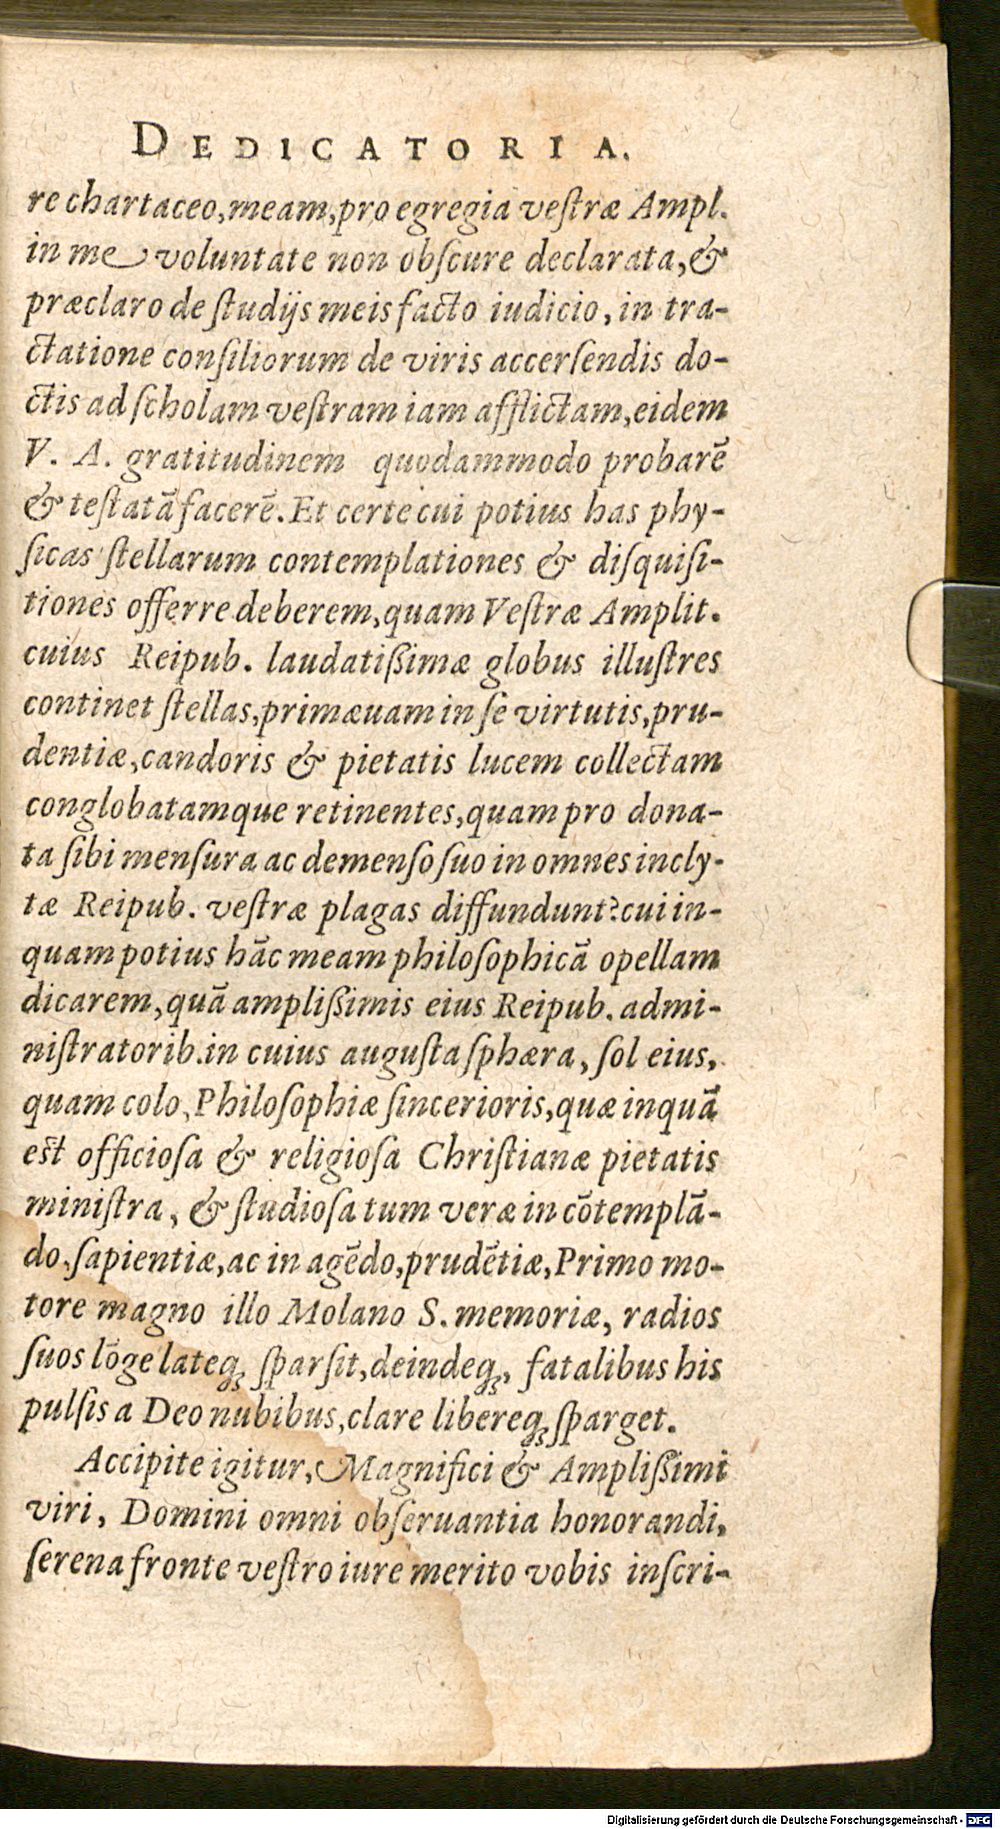 DEDICATORIA.
re chartaceo, meam, pro egregia veſtræ Ampl.
in me voluntate non obſcure declarata, &
præclaro de ſtudijs meis facto iudicio, in tra-
ctatione conſiliorum de viris accerſendis do-
ctis ad ſcholam veſtram iam afflictam, eidem
V. A. gratitudinem quodammodo probarē
& teſtatā facerē. Et certe cui potius has phy-
ſicas ſtellarum contemplationes & diſquiſi-
tiones offerre deberem, quam Veſtræ Amplit.
cuius Reipub. laudatißimæ globus illuſtres
continet ſtellas, primæuam in ſe virtutis, pru-
dentiæ, candoris & pietatis lucem collectam
conglobatamque retinentes, quam pro dona-
ta ſibi menſura ac demenſo ſuo in omnes incly-
tæ Reipub. veſtræ plagas diffundunt? cui in-
quam potius hāc meam philoſophicā opellam
dicarem, quā amplißimis eius Reipub. admi-
niſtratorib. in cuius auguſta ſphæra, ſol eius,
quam colo, Philoſophiæ ſincerioris, quæ inquā
eſt officioſa & religioſa Chriſtianæ pietatis
miniſtra, & ſtudioſa tum veræ in cōtemplā-
do, ſapientiæ, ac in agēdo, prudētiæ, Primo mo-
tore magno illo Molano S. memoriæ, radios
ſuos lōge lateq; ſparſit, deindeq;, fatalibus his
pulſis a Deo nubibus, clare libereq; ſparget.
Accipite igitur, Magnifici & Amplißimi
viri, Domini omni obſeruantia honorandi,
ſerena fronte veſtro iure merito vobis inſcri-
Digitalisierung gefördert durch die Deutsche Forschungsgemeinschaft - DFG